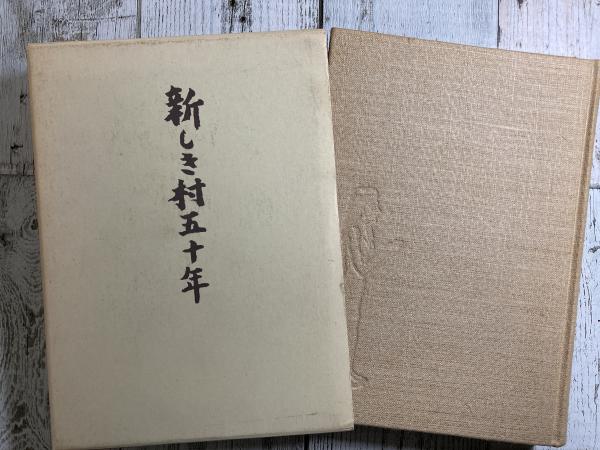 新しき村五十年